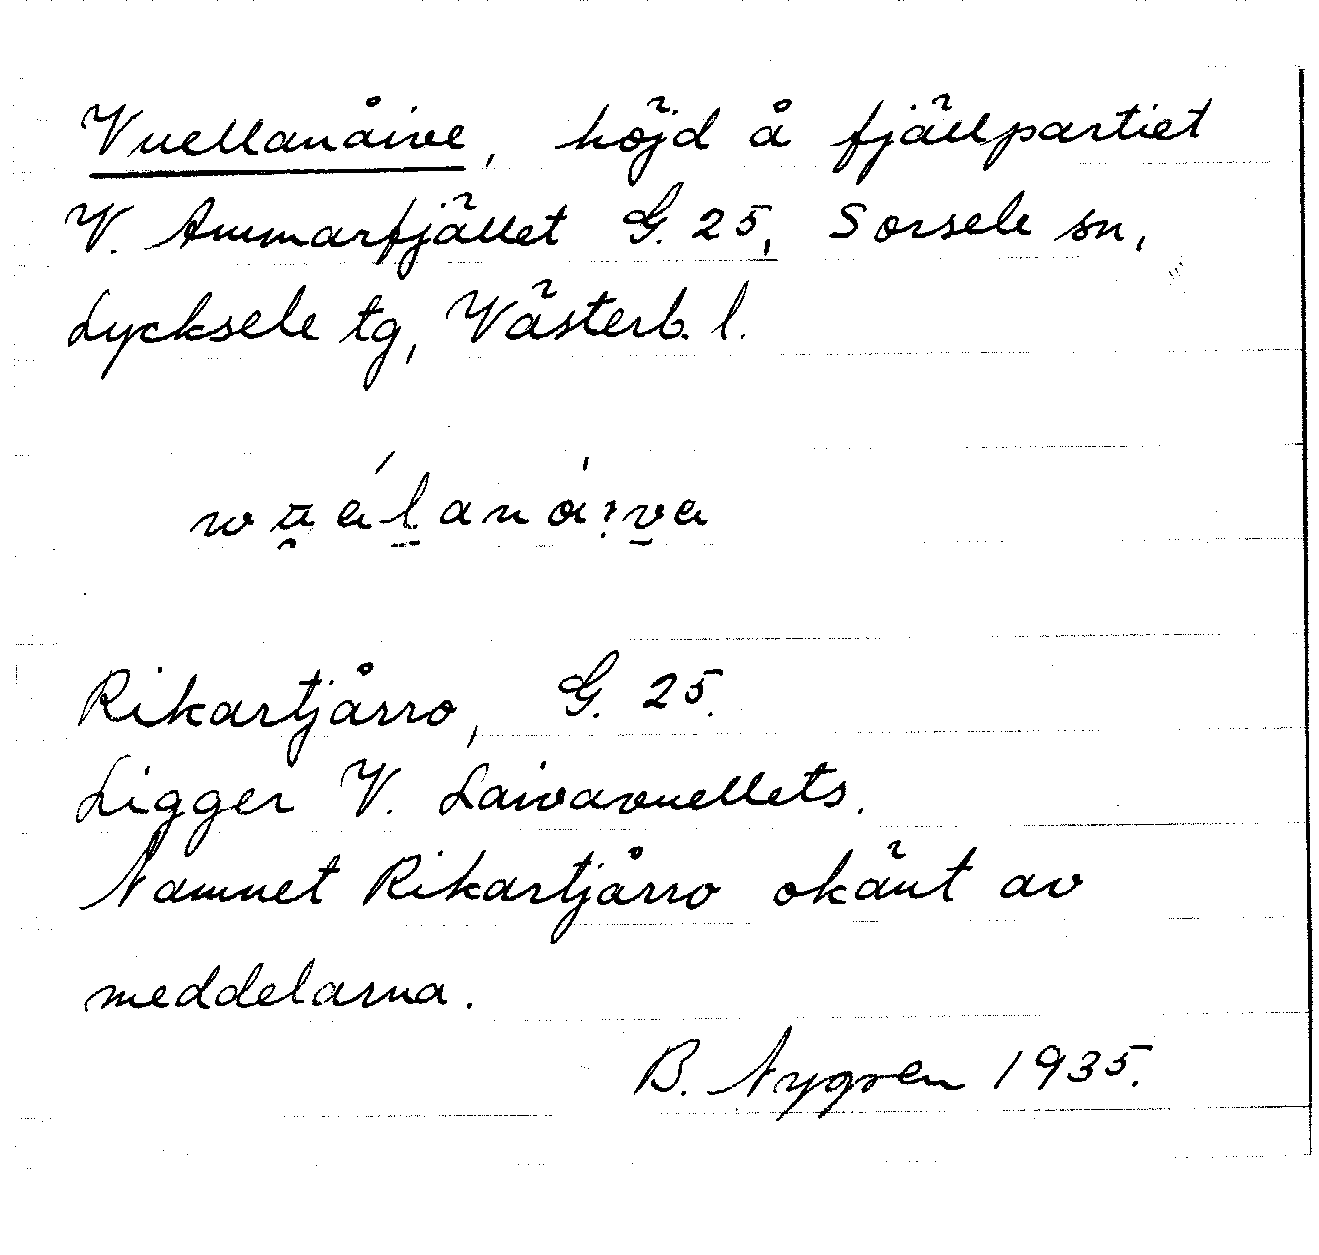 Vuellanåive, höjd å fjällpartiet
V. Ammarfjället G. 25, Sorsele sn,
Lycksele tg, Västerb. l.
Rikartjårro, G. 25.
Ligger V. Laivavuellets.
Namnet Rikartjårro okänt av
meddelarna.
B. Nygren 1935.